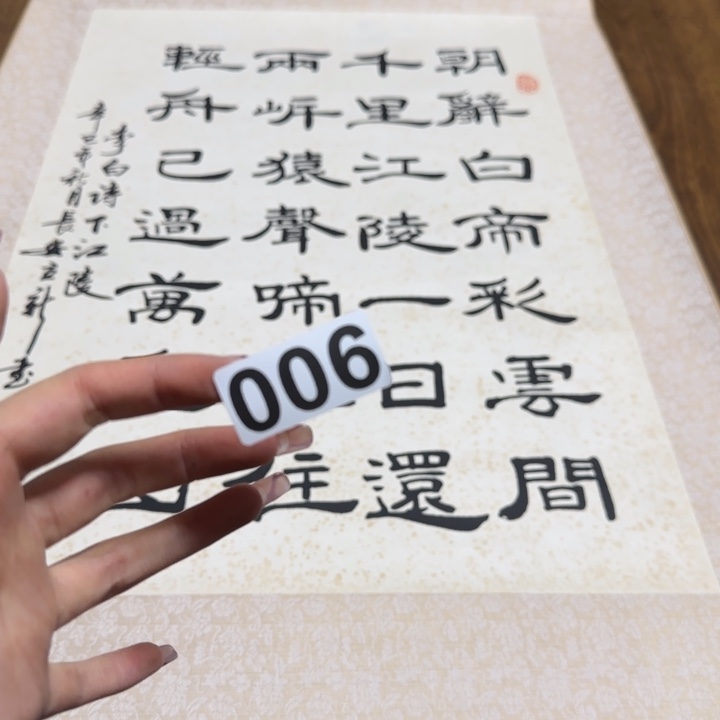 朝辭白帝彩雲間
千里江陵一日還
兩岸猿聲啼住
輕舟已過萬
李白诗下江陵
辛巳年秋月長安立新書
006